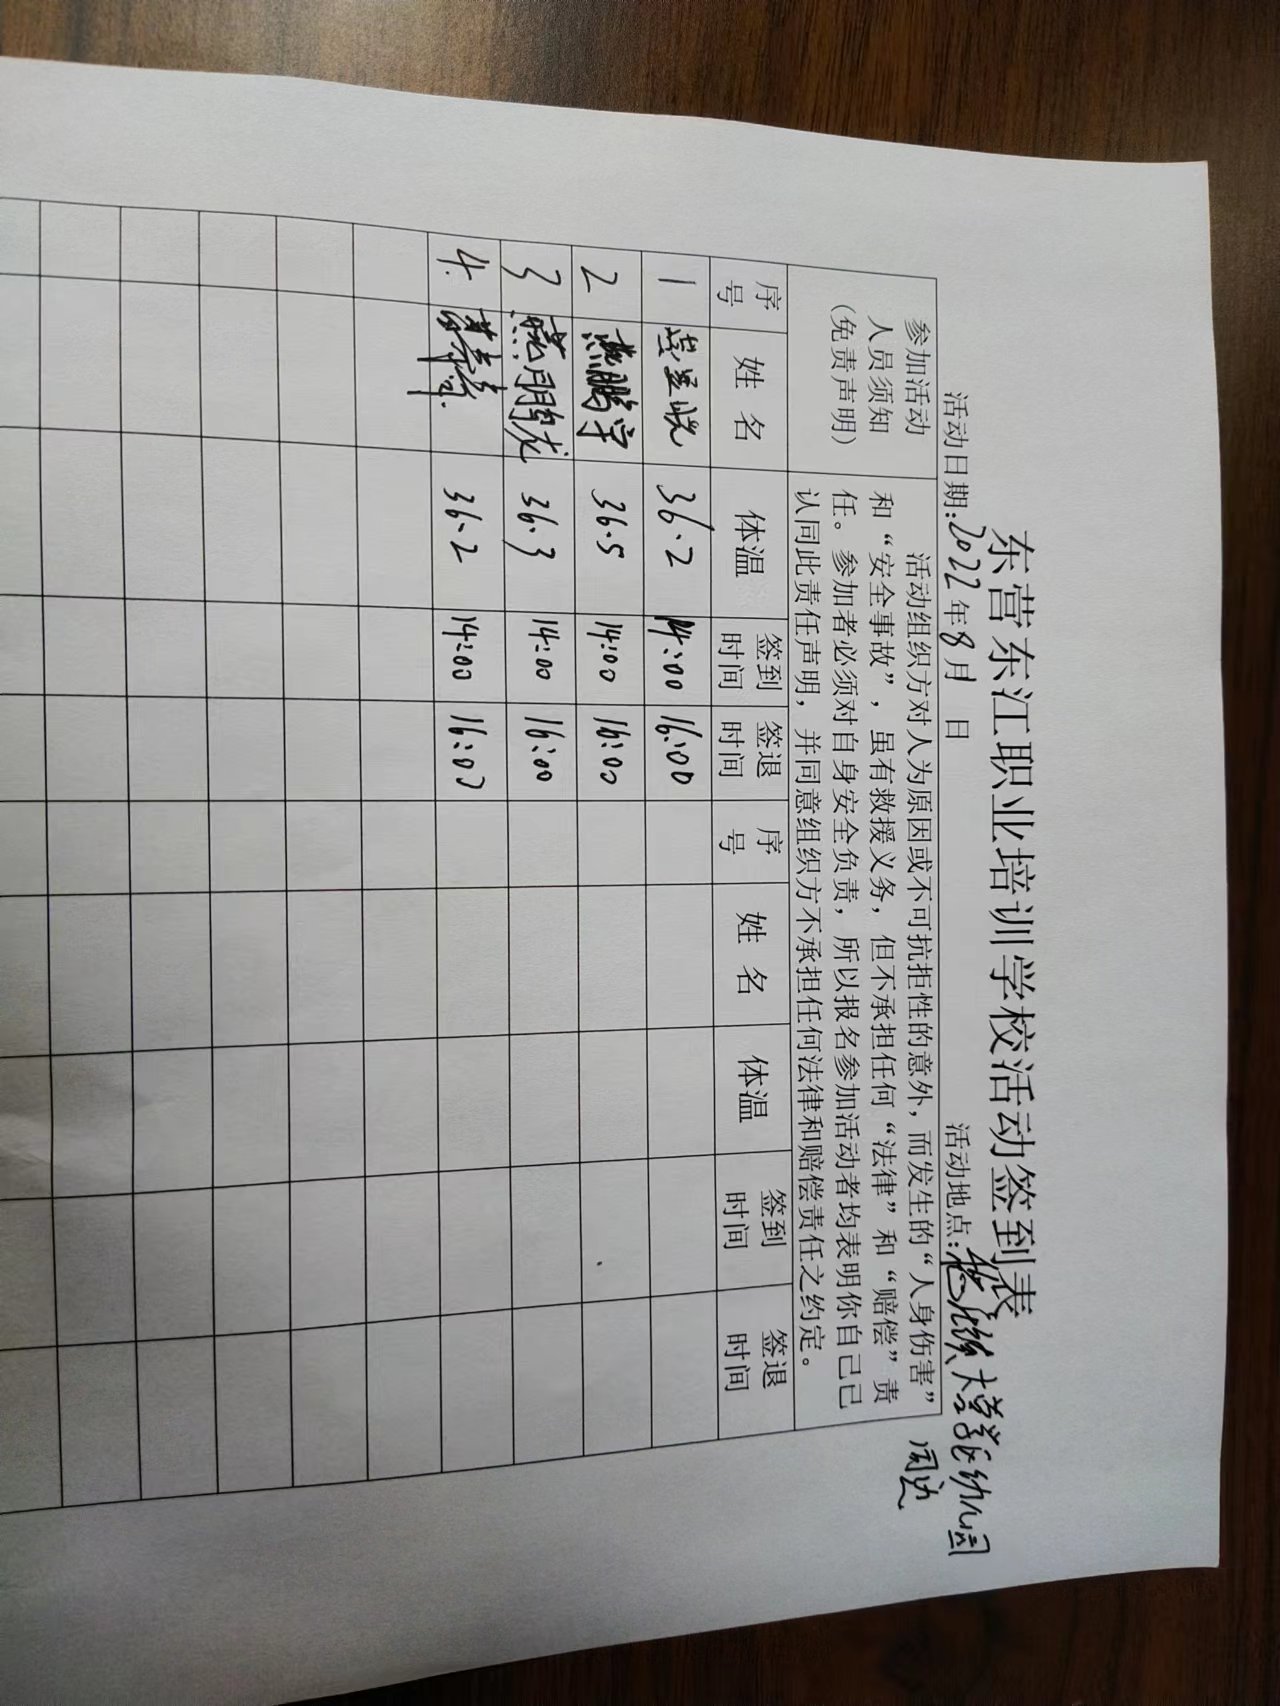 东营东江职业培训学校活动签到表
活动日期：2022年8月 日 活动地点：大学城幼儿园
周边
参加活动
人员须知
（免责声明）
活动组织方对人为原因或不可抗拒性的意外，而发生的“人身伤害”
和“安全事故”，虽有救援义务，但不承担任何“法律”和“赔偿”责
任。参加者必须对自身安全负责，所以报名参加活动者均表明你自己已
认同此责任声明，并同意组织方不承担任何法律和赔偿责任之约定。
序号 姓名 体温 签到时间 签退时间 序号 姓名 体温 签到时间 签退时间
1 36.2 14:00 16:00
2 燕鹏宇 36.5 14:00 16:00
3 燕鹏龙 36.3 14:00 16:00
4. 36.2 14:00 16:00